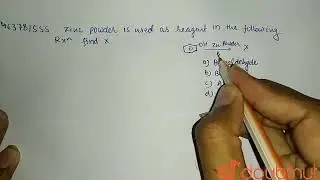 46378/555 Zinc powder is used as reagent in the following
Rxn find X
OH Zn Powder X
a)
b)
c)
d)
doubtnut